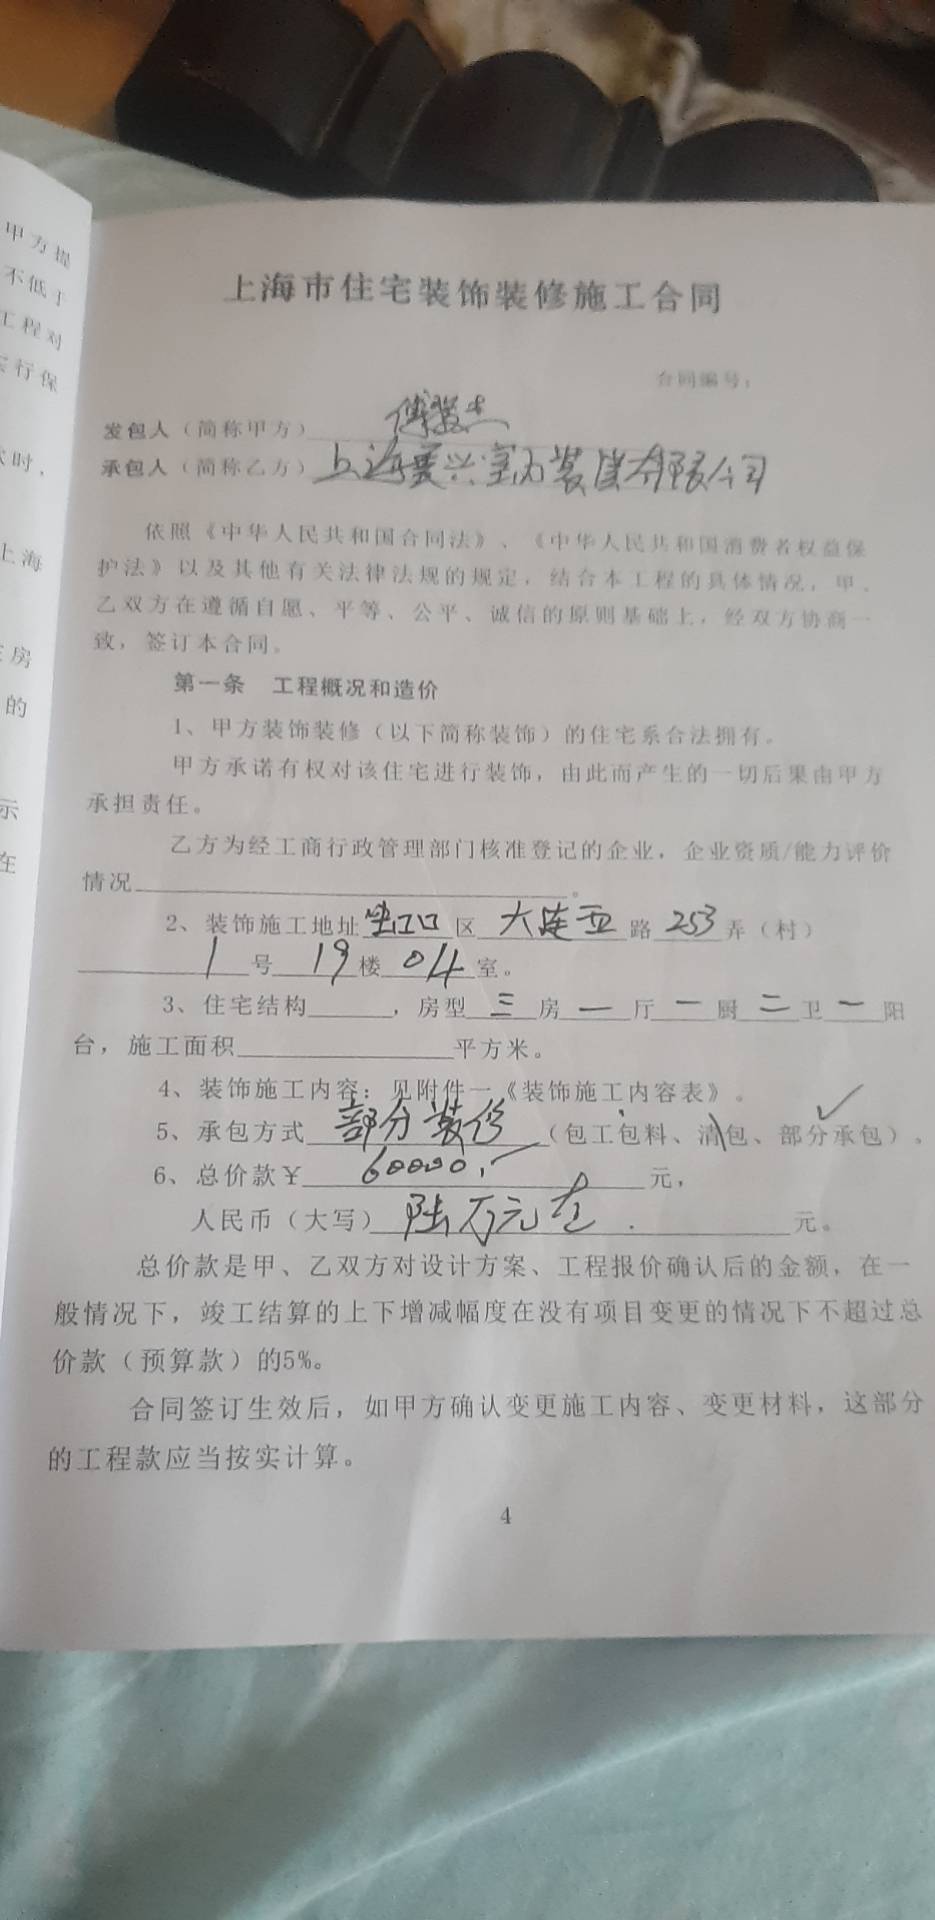 甲方提
不低于
工程对
实行保
时，
上海
房
的
示
在
上海市住宅装饰装修施工合同
合同编号：
发包人（简称甲方）傅 杰
承包人（简称乙方）上海 兴室内装饰有限公司
依照《中华人民共和国合同法》、《中华人民共和国消费者权益保
护法》以及其他有关法律法规的规定，结合本工程的具体情况，甲、
乙双方在遵循自愿、平等、公平、诚信的原则基础上，经双方协商一
致，签订本合同。
第一条 工程概况和造价
1、甲方装饰装修（以下简称装饰）的住宅系合法拥有。
甲方承诺有权对该住宅进行装饰，由此而产生的一切后果由甲方
承担责任。
乙方为经工商行政管理部门核准登记的企业，企业资质/能力评价
情况 。
2、装饰施工地址虹口区大连西路253弄（村）
1号19楼04室。
3、住宅结构 ，房型三房一厅一厨二卫一阳
台，施工面积 平方米。
4、装饰施工内容：见附件一《装饰施工内容表》。
5、承包方式部分装修（包工包料、清包、部分承包）。
6、总价款￥60000.-元，
人民币（大写）陆万元正.元。
总价款是甲、乙双方对设计方案、工程报价确认后的金额，在一
般情况下，竣工结算的上下增减幅度在没有项目变更的情况下不超过总
价款（预算款）的5%。
合同签订生效后，如甲方确认变更施工内容、变更材料，这部分
的工程款应当按实计算。
4